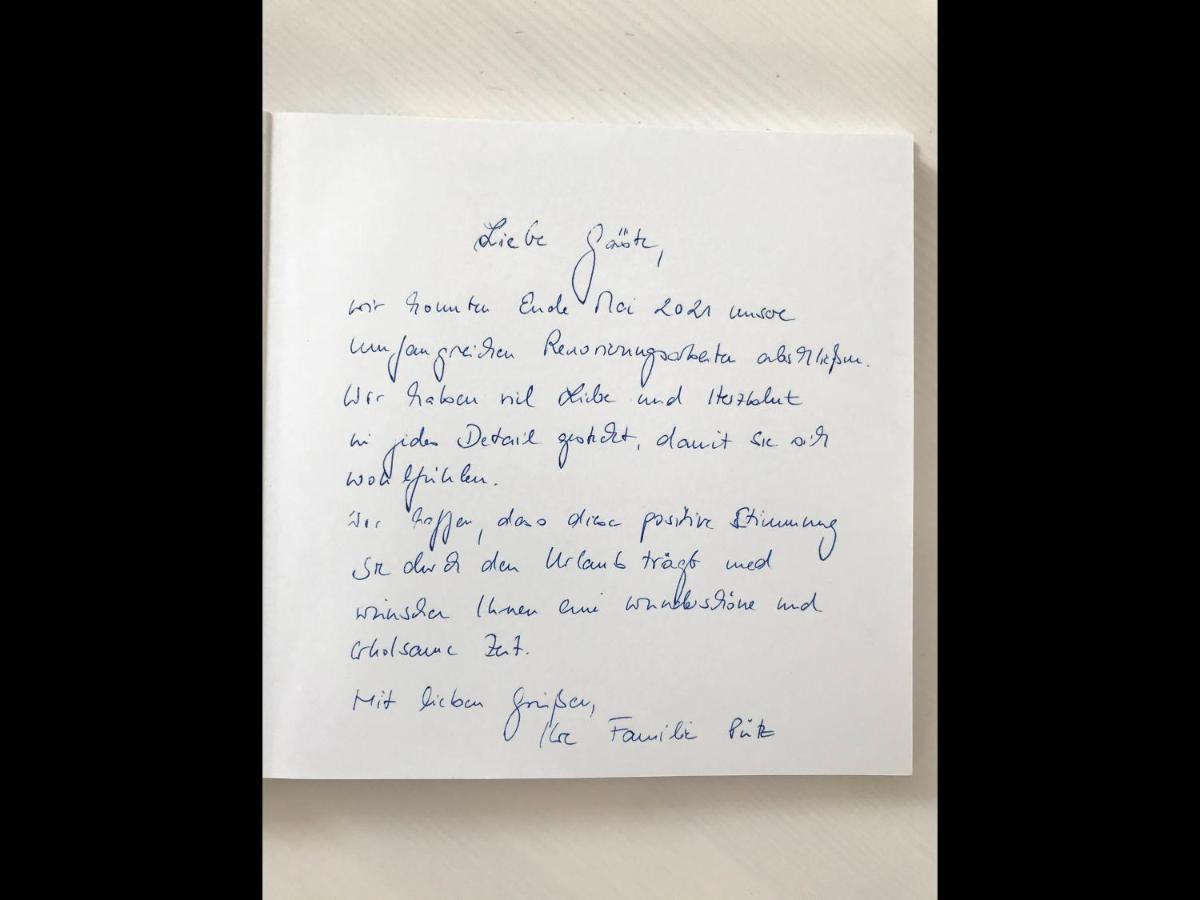 Liebe Gäste,
wir konnten Ende Mai 2021 unsere
umfangreichen Renovierungsarbeiten abschließen.
Wir haben viel Liebe und Herzblut
in jedes Detail gesteckt, damit Sie sich
wohlfühlen.
Wir hoffen, dass diese positive Stimmung
Sie durch den Urlaub trägt und
wünschen Ihnen eine wunderschöne und
erholsame Zeit.
Mit lieben Grüßen,
Ihre Familie Pütz